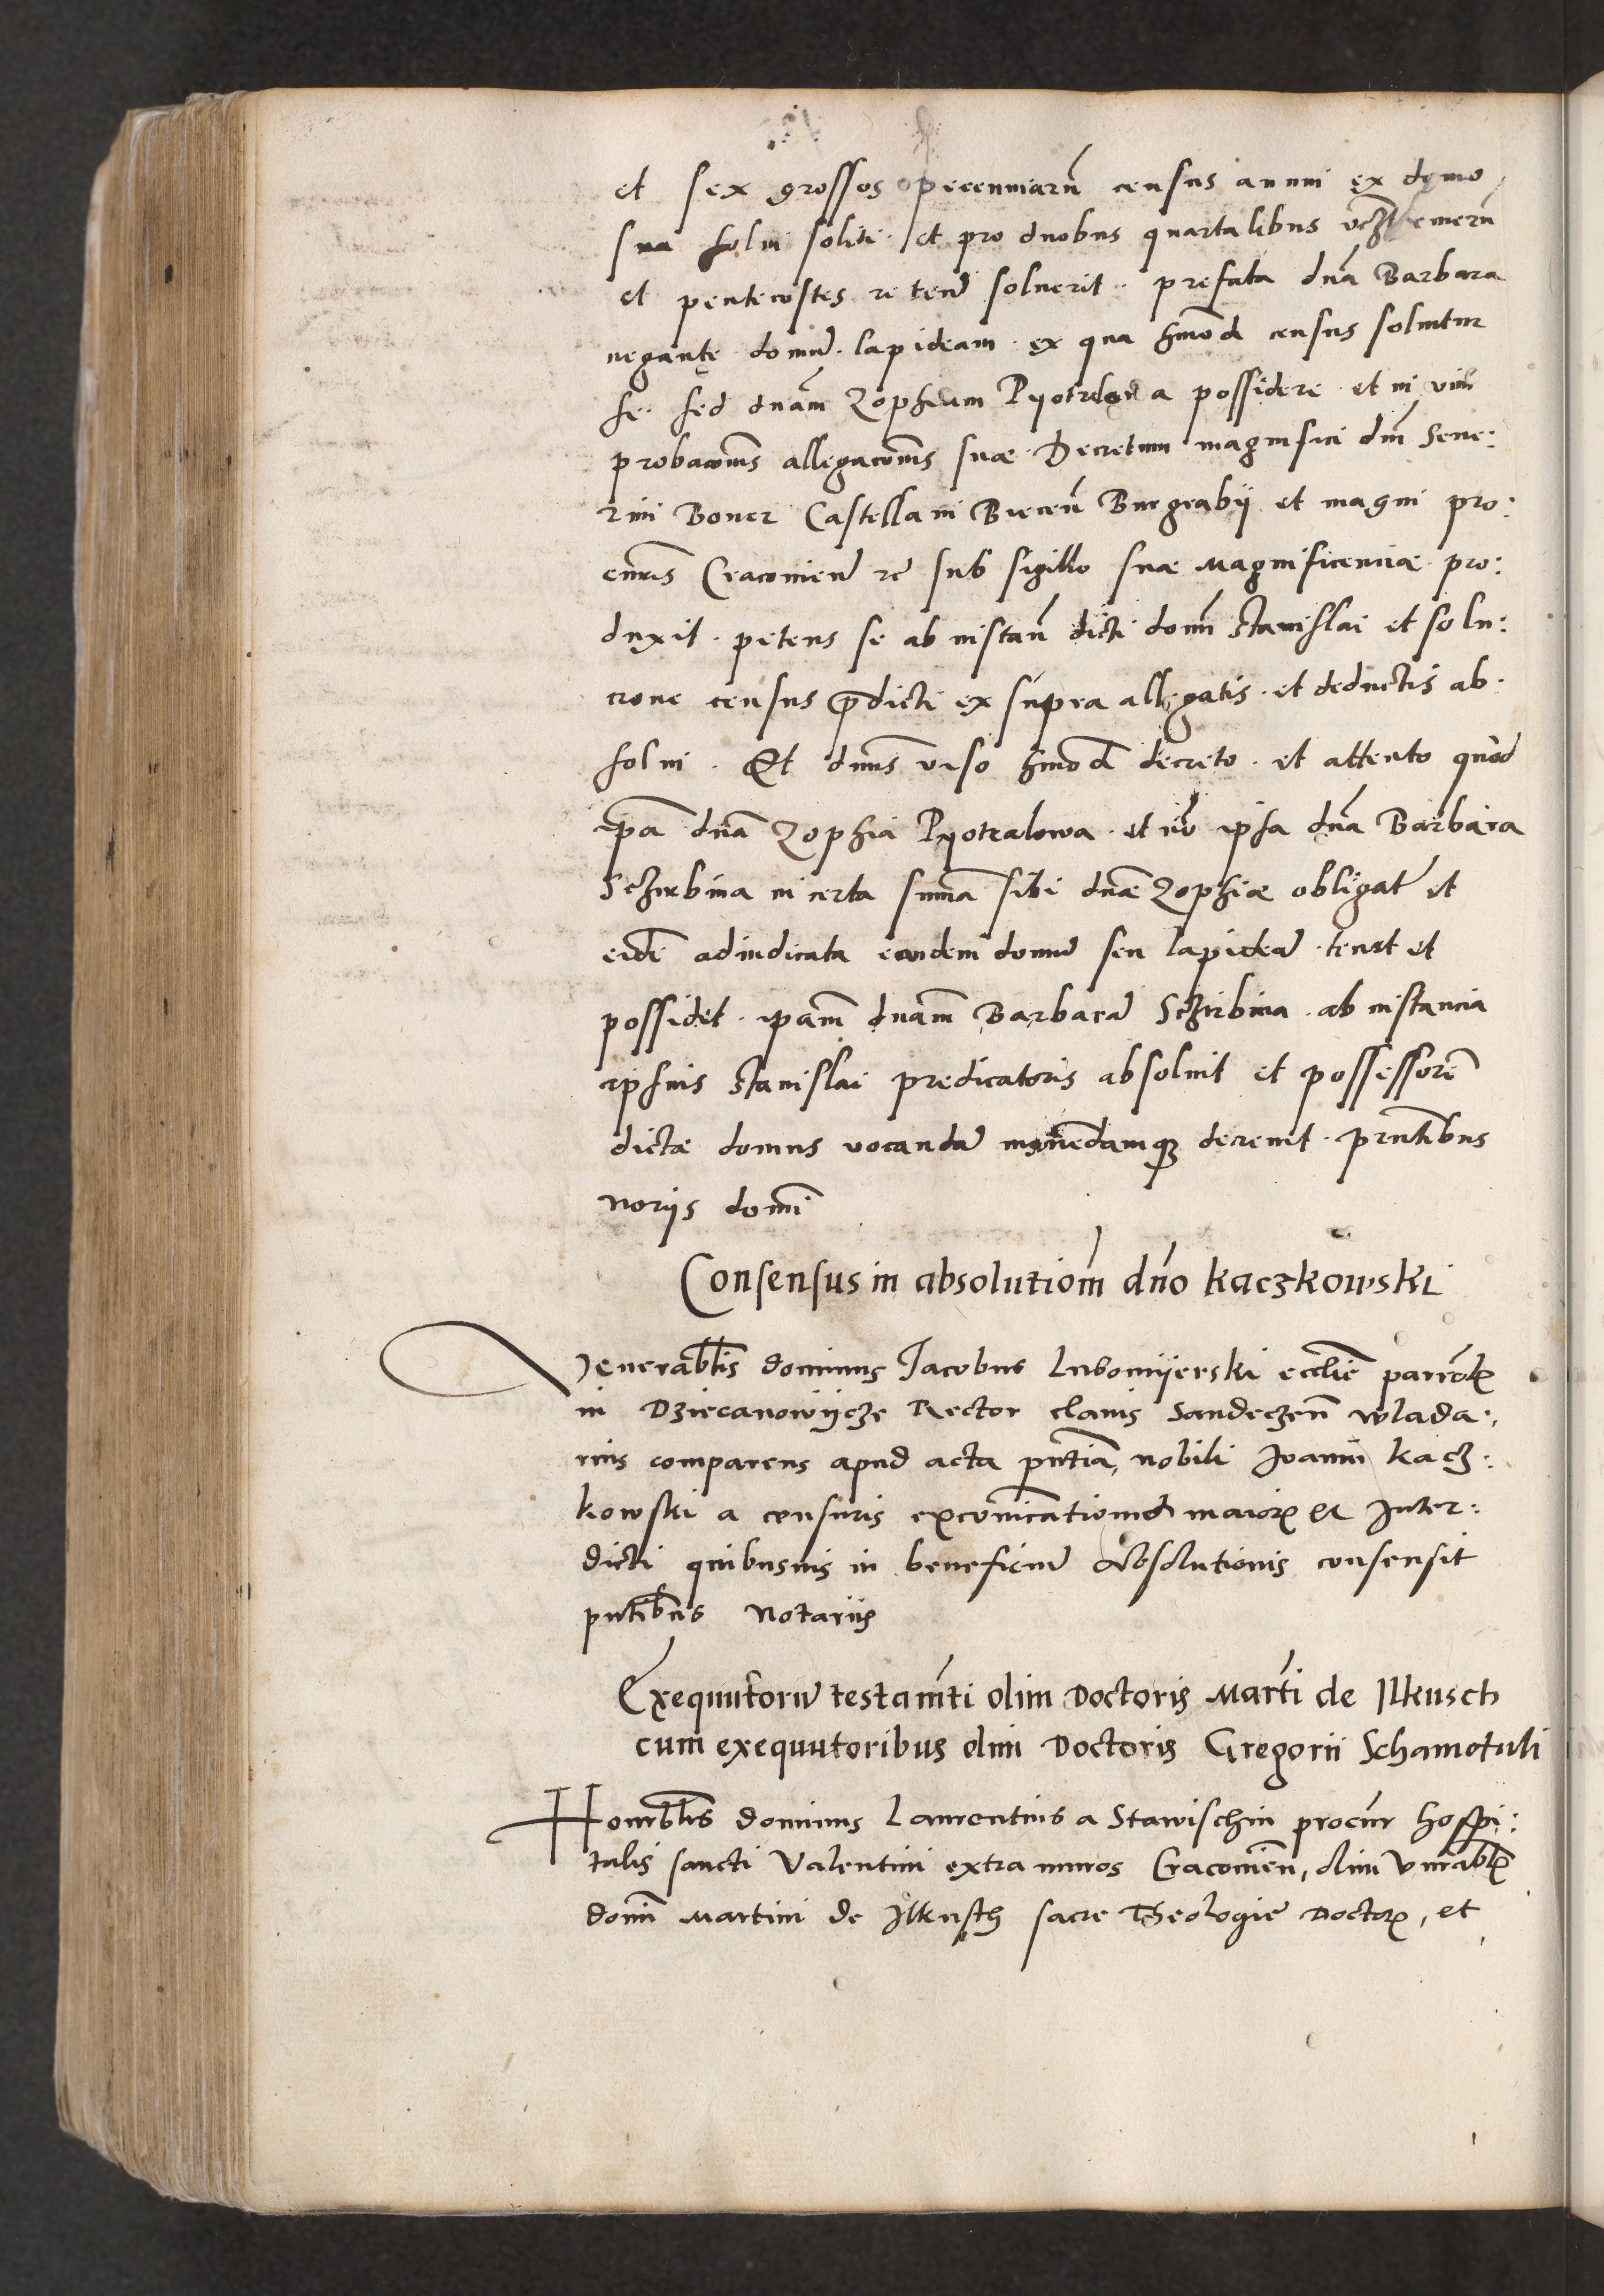 et sex grossos pecenniarū census annui ex domo
sua solvi soliti. et pro duobus quartalibus
et pentecostes re tent solverit. prefata dnā Barbara
negante domū. lapideam. ex qua hmōd census solvitur
se. sed dnām Zophiam Pyotrkowa possidere et in vim
probacōnis allegacōnis suæ. Decretum magnifici dni Seve:
rini Boner Castellani Biecen̄ Burgrabij et magni pro:
curis Cracovien̄ re sub sigillo suæ Magnificenciæ pro:
duxit. petens se ab instan̄ dicti domī Stanislai et solu:
cione census p̄dicti ex supra allegatis. et deductis ab.
solvi. Et dnus viso hmōd decreto. et attento quod
ip̄a dnā Zophia Pyotrkowa. et nō ipsa dnā Barbara
Schirbina in certa summa sibi dnæ Zophiæ obligat̄ et
eidē adiudicata eandem domū seu lapideā. tenet et
possidet. ip̄am dnām Barbarā Schirbina. ab instancia
ipsius Stanislai predicatoris absolvit et possessorē
dictæ domus vocandā monendamq3 decrevit. pr̄ntibus
noriis domī
Consensus in absolutiom̄ dn̄o Kaczkowski
Venerablis dominus Jacobus Lubomijerski eccliē parrolꝭ
in Dziecanowijcze Rector clavis Sandeczen̄ wlada:
rius comparens apud acta pn̄tia, nobili Joanni Kacz:
kowski a censuris excōmunicationis maiorꝭ et Inter:
dicti quibusvis in beneficiū Absolutionis consensit
pn̄tibus Notariis
Exequutorū testamn̄ti olim Doctoris Martī de Ilkusch
cum exequutoribus olim Doctoris Gregorii Schamotuli
Honrablis dominus Laurentius a Stawischin procūr hospi:
talis sancti Valentini extra muros Cracovien̄, olim Vnrablꝭ
domī Martini de Ilkusch sacre Theologie Doctorꝭ, et